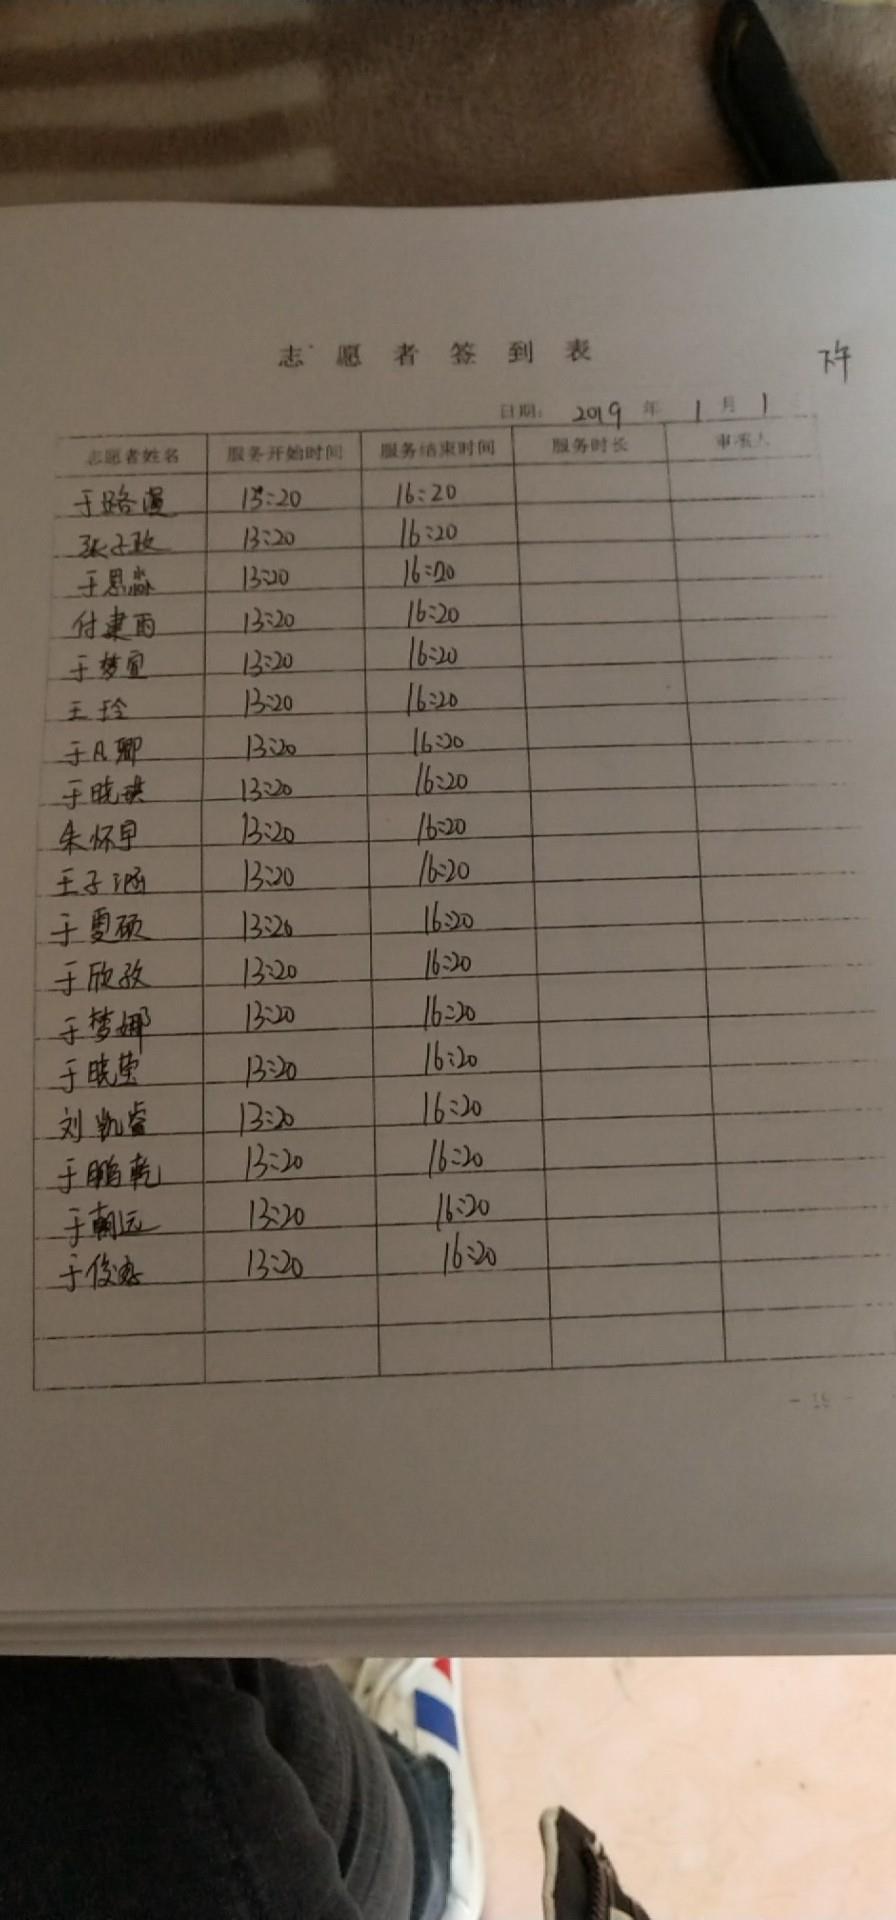 志愿者签到表
下午
日期: 2019 年 1 月 1
志愿者姓名 服务开始时间 服务结束时间 服务时长 审核人
于路漫 13:20 16:20
张子政 13:20 16:20
于思淼 13:20 16:20
付建雨 13:20 16:20
于梦宜 13:20 16:20
王玲 13:20 16:20
于凡卿 13:20 16:20
于晓琪 13:20 16:20
朱怀早 13:20 16:20
王子涵 13:20 16:20
于夏硕 13:20 16:20
于欣孜 13:20 16:20
于梦娜 13:20 16:20
于晓莹 13:20 16:20
刘凯睿 13:20 16:20
于鹏乾 13:20 16:20
于朝远 13:20 16:20
于俊 13:20 16:20